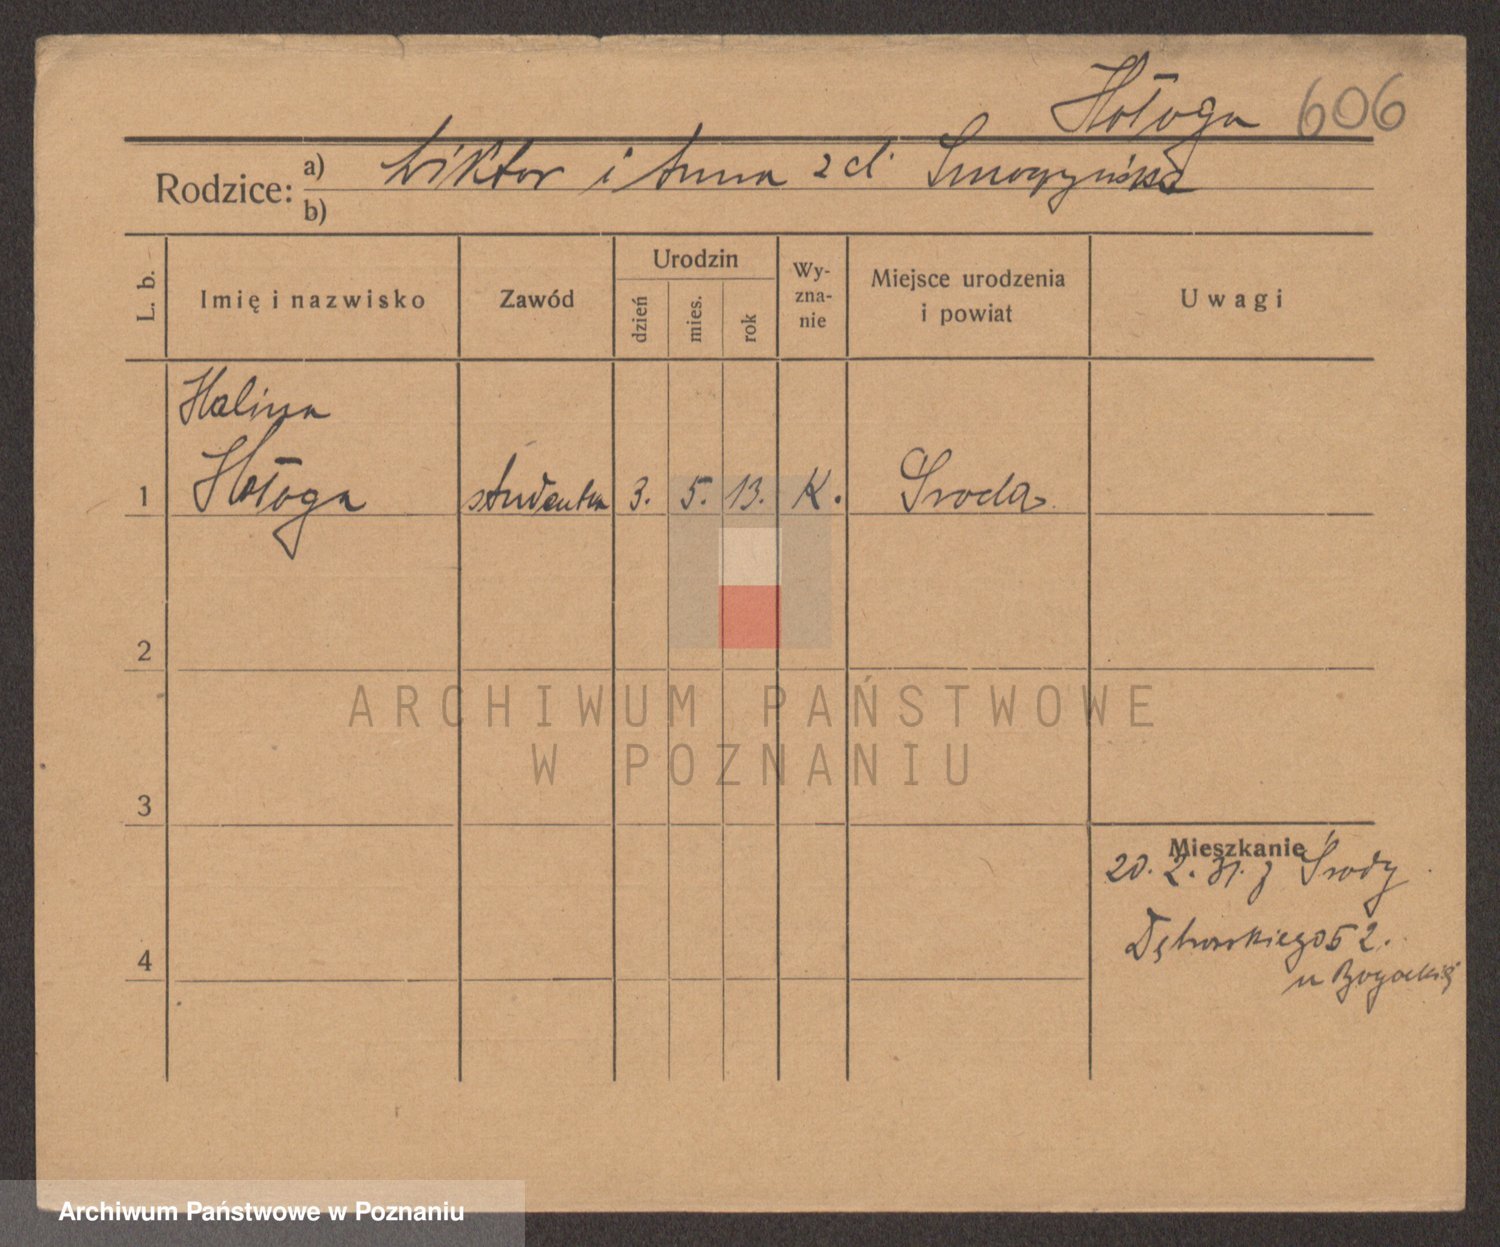 Hołoga 606
Rodzice: a) Wiktor i Anna z d.
b)
L. b.
Imię i nazwisko
Zawód
Urodzin
dzień
mies.
rok
Wy-
zna-
nie
Miejsce urodzenia
i powiat
Uwagi
Halina
1 Hołoga studentka 3. 5. 13. K. Środa
2
3
4
Mieszkanie
20. 2. 31. z Środy
Dąbrowskiego 52.
u Bogackiej
ARCHIWUM PAŃSTWOWE
W POZNANIU
Archiwum Państwowe w Poznaniu